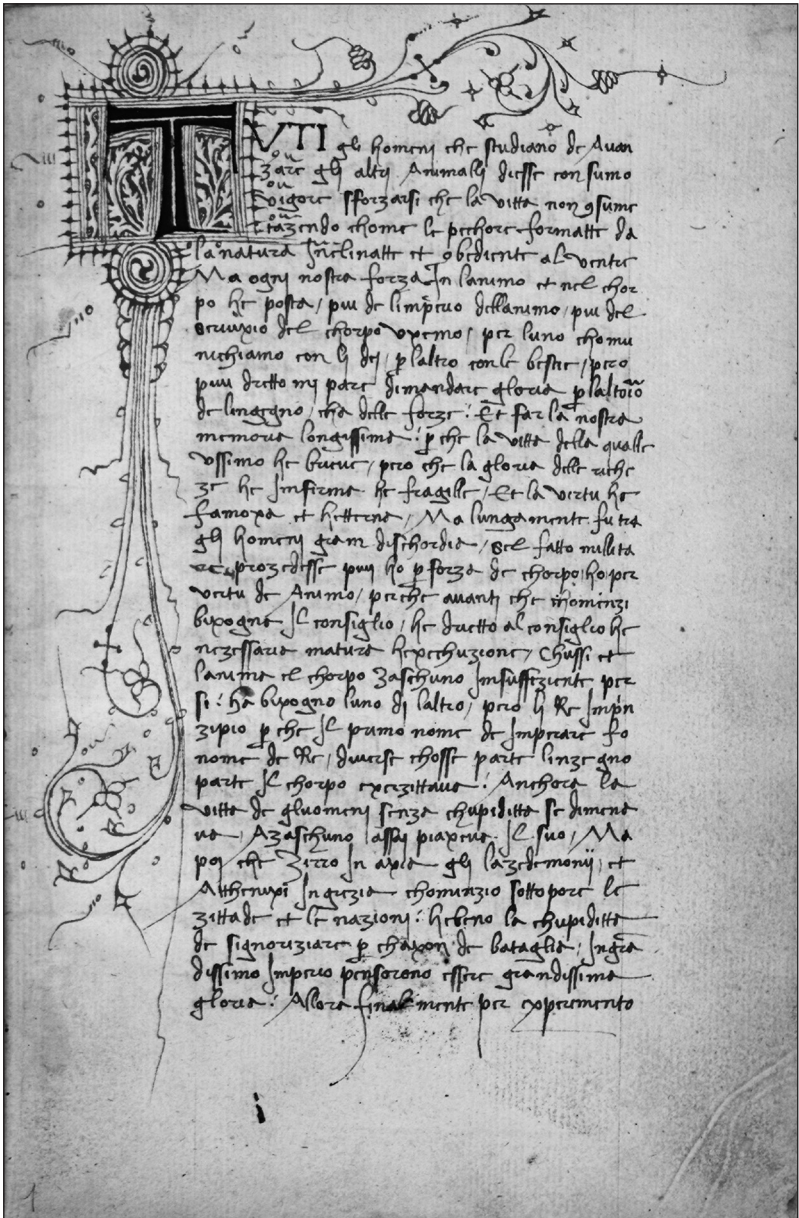 TVTI gli homeni che studiano de Auan
zare gli altri Animalli diesse con sumo
vigore sforzarsi che la vitta non 9sume
tazendo chome le pechore formatte da
la natura Inclinatte et obediente al ventre
Ma ogni nostra forza In lanimo et nel chor
po he posta / piu de limperio dellanimo / piu del
seruixio del chorpo vxemo / per luno chomu
nichiamo con li dej / p laltro con le bestie / pero
piui dretto mi pare dimandare gloria p
de lingegno / cha delle forze : Et far la nostra
memoria longissima : p che la vitta della qualle
vssimo he breue / pero che la gloria delle riche
ze he Infirma he fragille / Et la vertu he
famoxa et hetterna / Ma lungamente fu tra
gli homeni gram dischordia / sel fatto millita
re prozedesse piui ho p forza de chorpo / ho per
vertu de Animo / perche auanti che chomenzi
bixogna Il consiglio / he dretto al consiglio he
nezessaria matura hexechuzione / Chussi et
lanima el chorpo zaschuno Imsuffiziente per
si : ha bixogno luno di laltro / pero li Re Imprin
zipio p che Il primo nome de Imperare fo
nome de Re / diuerse chosse parte linzegno
parte Il chorpo exerzittaua : Anchora la
vitta de gluomeni senza chupiditta se dimena
ua / Azaschuno assai piaxeua Il suo / Ma
poi che Zirro In axia gli lazedemonij / et
Atheniixi In grezia chominzio sottopore le
zittade et le nazioni : hebeno la chupiditta
de signoriziare p chaxon de bataglia / Ingra
dissimo Imperio pensorono essere grandissima
gloria : Allora finalmente per experimento
1